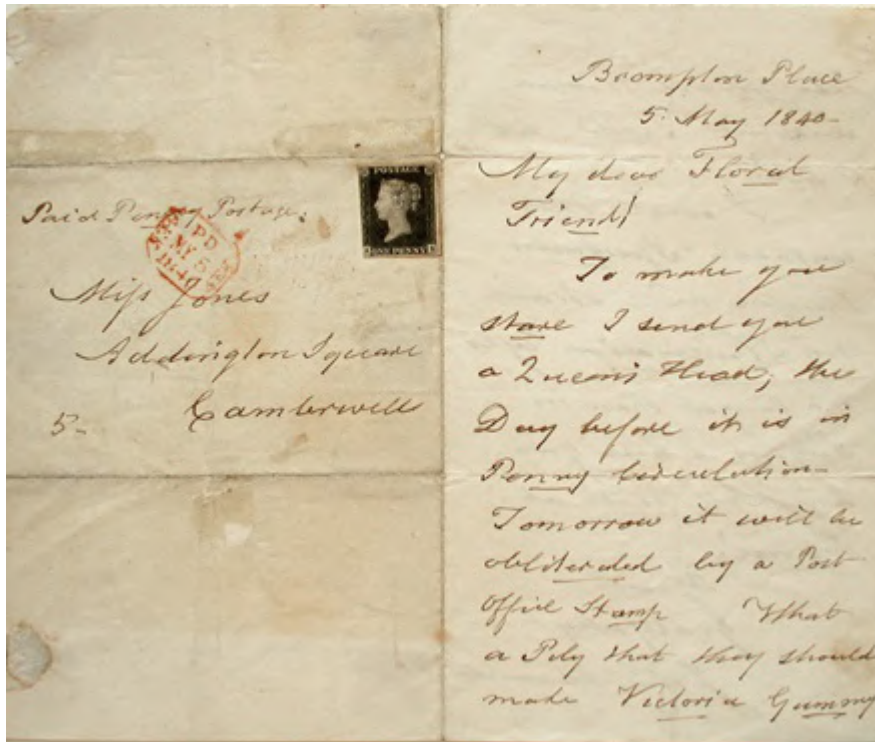 Paid Penny Postage.
POSTAGE
ONE PENNY
PD
MY 5
1840
Miss Jones
Addington Square
Camberwell
5-
Brompton Place
5. May 1840-
My dear Floral
Friend!
To make you
stare I send you
a Queen's Head, the
Day before it is in
Penny Circulation-
Tomorrow it will be
obliterated by a Post
Office Stamp What
a Pity that they should
make Victoria Gummy